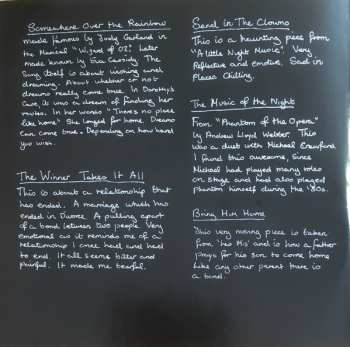 Somewhere Over the Rainbow
made famous by Judy Garland in
the Musical "Wizard of OZ". Later
made known by Eva Cassidy. The
Song itself is about wishing and
dreaming. About whether or not
dreams really come true. In Dorothy's
Case, it was a dream of finding her
routes. In her words "There's no place
like home" She longed for home. Dreams
Can come true. Depending on how hard
you wish.
The Winner Takes It All
This is about a relationship that
has ended. A marriage which has
ended in Divorce. A pulling apart
of a bond between two people. Very
emotional as it reminds me of a
relationship I once had and had
to end. It all seems bitter and
painful. It made me tearful.
Send In The Clowns
This is a haunting piece from
"A little Night Music". Very
Reflective and emotive. Sad in
places. Chilling.
The Music of the Night
From "Phantom of the Opera"
by Andrew Lloyd Webber. This
was a duet with Michael Crawford
I found this awesome, since
Michael had played many roles
on stage and had also played
phantom himself during the '80s.
Bring Him Home
This very moving piece is taken
from 'Les Mis' and is how a father
prays for his son to come home
Like any other parent there is
a bond.